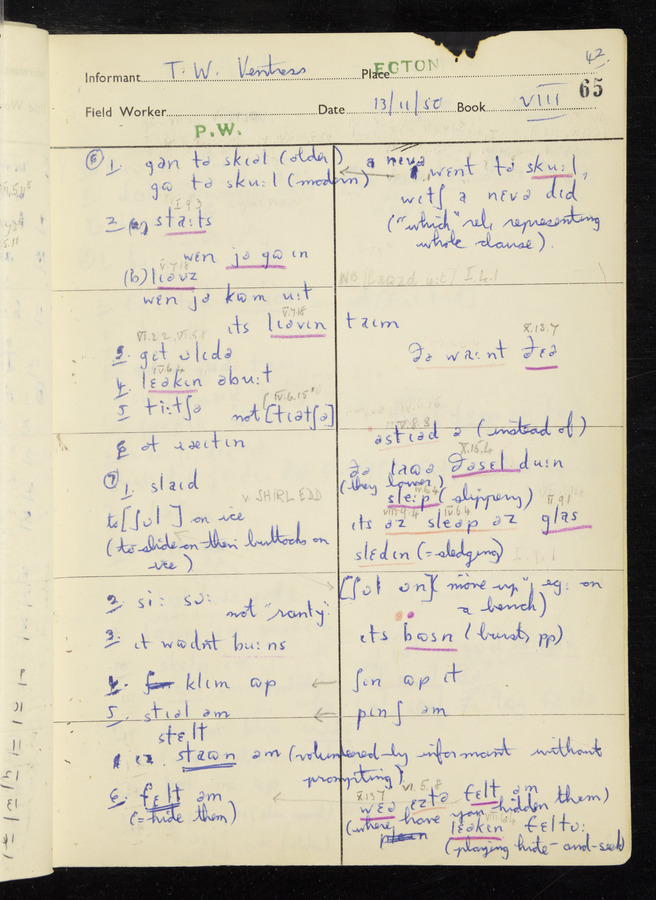 42.
Informant T. W. Ventress Place EGTON
65
Field Worker Date 13/11/50 Book VIII
P.W.
⑥ 1. gan tə skɪəl (older)
gə tə sku:l (modern)
ə nɛvə went tə sku:l,
wɪtʃ ə nɛvə dɪd
("which" rel. representing
whole clause).
I 9.3
2 (a) sta:ts
wɛn jə gə ɪn
V.7.18
(b) lɪəvz
wɛn jə kəm u:t
V.7.18
ɪts lɪəvɪn taɪm
VI.2.2, VI.5.1
3. gɛt ɒlɪdə
X.13.7
ðə wa:nt ðɛə
IV.6.4
4. lɛəkɪn əbu:t
IV.6.15
5 ti:tʃə not [tɪətʃə]
6 ət ɪəɪtɪn
əstɪəd ə (instead of)
⑦ 1. slaɪd
v. SHIRL EDD
to [ʃʊl] on ice
(to slide on their buttocks on
ice)
ðə laʊə ðəsɛl du:n
(they lower)
slɛ:p (slippery)
ɪts əz slɛəp əz glas
slɛdɪn (= sledging)
2. si: sɔ:
not "ranty".
[ʃʊl ɒn] ("move up", eg. on
a bench)
3. ɪt wədnt bu:ns
ɪts bəsn (burst, pp)
4. klɪm əp ←
ʃɪn əp ɪt
5. stɪəl əm ←
stɛlt
pɪnʃ əm
stəʊn əm (volunteered by informant without
prompting)
6. fɛlt əm
(= hide them)
X.13.7 VI.5.8
wɛə ɛztə fɛlt əm
(where have you hidden them)
lɛəkɪn fɛltɒ:
(playing hide-and-seek)